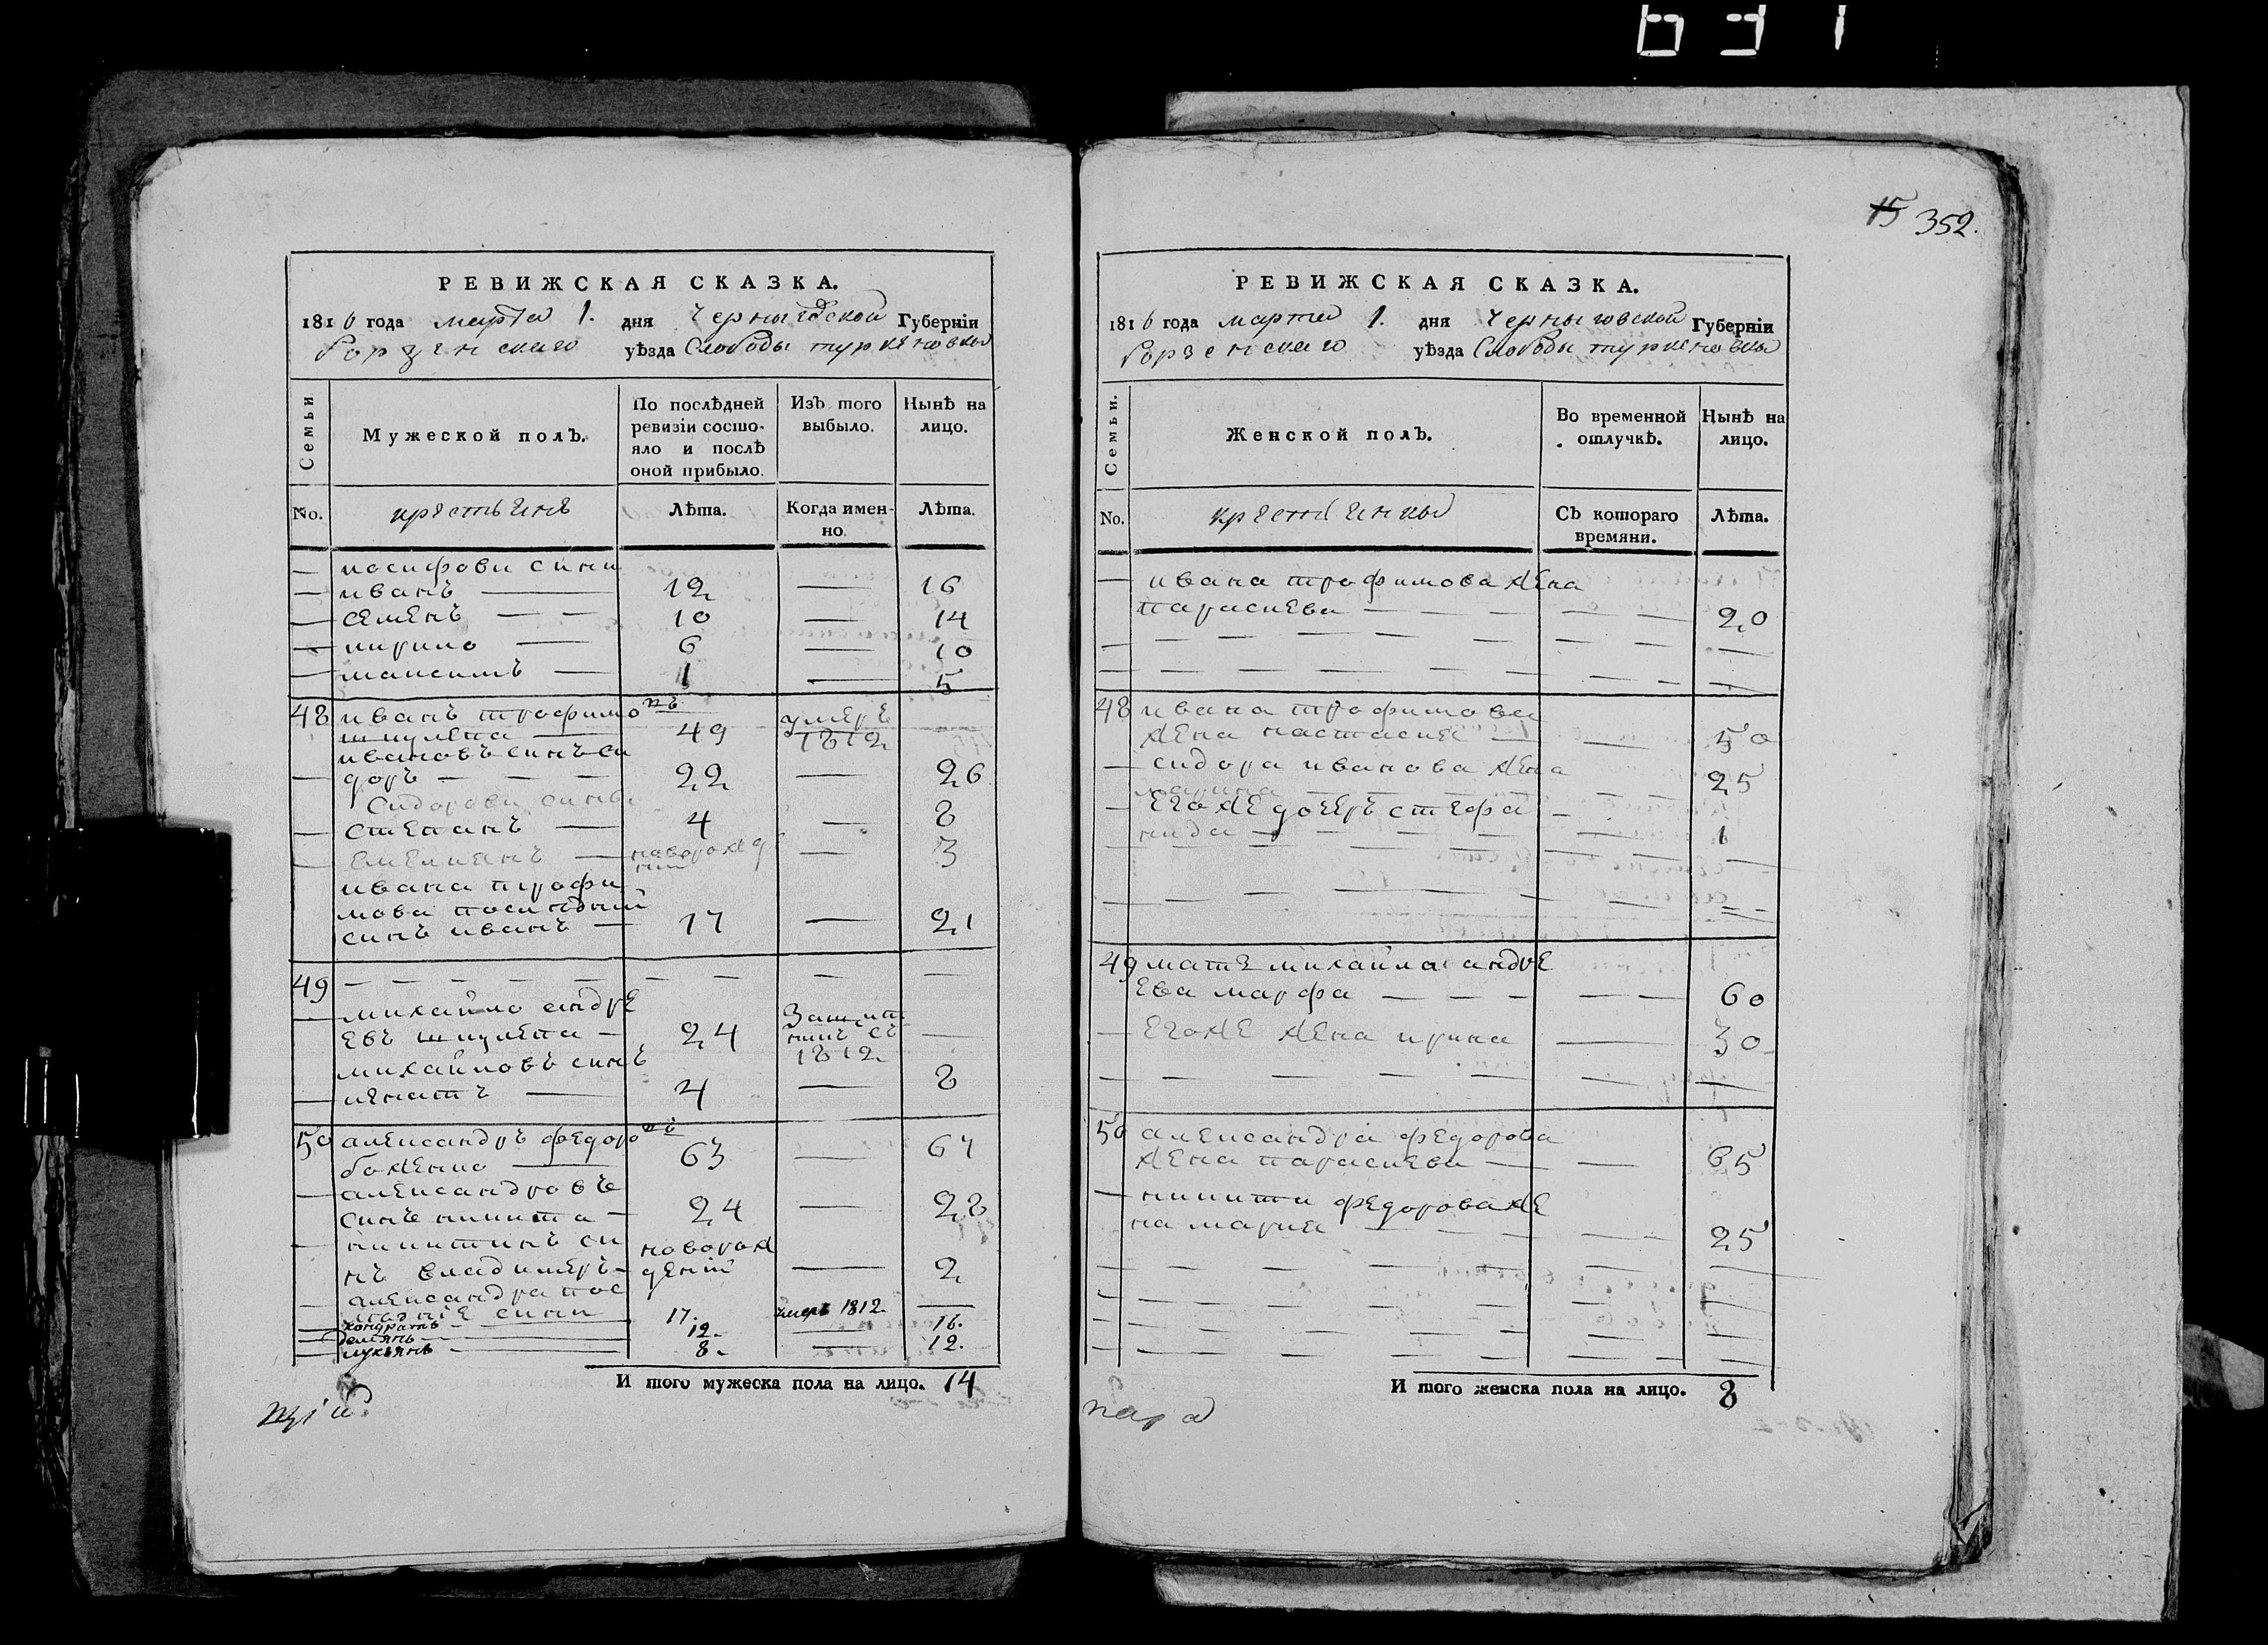 631
15 352.
РЕВИЖСКАЯ СКАЗКА.
1816 года марта 1. дня Черныговской Губерніи
Борзенскаго уѣзда Слободы туркеновкы
Семьи
Мужеской полъ.
По послѣдней ревизіи состояло и послѣ оной прибыло.
Изъ того выбыло.
Нынѣ на лицо.
No.
крестьяне
Лѣта.
Когда именно.
Лѣта.
— иосифови сини
— иванъ — 12 — 16
— семенъ — — 10 — 14
— кирило — 6 — 10
— максимъ — 1 — 5
48 иванъ трофимовъ
шкулѣпа — 49 умеръ 1812 —
ивановъ синъ си
— доръ — — — 22 — 26
Сидорови сини
— степанъ — 4 — 8
— емелиянъ — новорожденій — 3
ивана трофи
мова последний
синъ иванъ — 17 — 21
49 — — — — — — — — —
— михайло андре
евъ шкулѣпа — 24 1812 —
михайловъ синъ
— игнатъ — 4 — 8
50 александръ федоровъ
боженко — 63 — 67
— александровъ
синъ никита — 24 — 28
— никитинъ си
нъ владимеръ — новорожденій — 2
— александра пос
ладніе сини 17. умеръ 1812. —
— кондратъ — 12. — 16.
— демянъ — 8. — 12.
— лукянъ —
И того мужеска пола на лицо. 14
РЕВИЖСКАЯ СКАЗКА.
1816 года марта 1. дня Черныговской Губерніи
Борзенскаго уѣзда Слободы туркеновкы
Семьи.
Женской полъ.
Во временной отлучкѣ.
Нынѣ на лицо.
No.
крестянкы
Съ котораго времяни.
Лѣта.
— ивана трофимова жена
параскева — — — — — 20
— — — — — — — — —
— — — — — — — — —
48 ивана трофимова
жена настасия — — 50
— сидора иванова жена
марина — — — — — 25
— его же дочеръ стефа
нида — — — — — 1
— — — — — — — — —
— — — — — — —
49 матъ михайла андре
ева марфа — — — — — 60
— его же жена ирина — 30
— — — — — — — — —
50 александра федорова
жена параскева — — 65
— никити федорова же
на мария — — — — 25
— — — — — — — —
— — — — — — — —
— — — — — — — —
— — — — — — — —
И того женска пола на лицо. 8